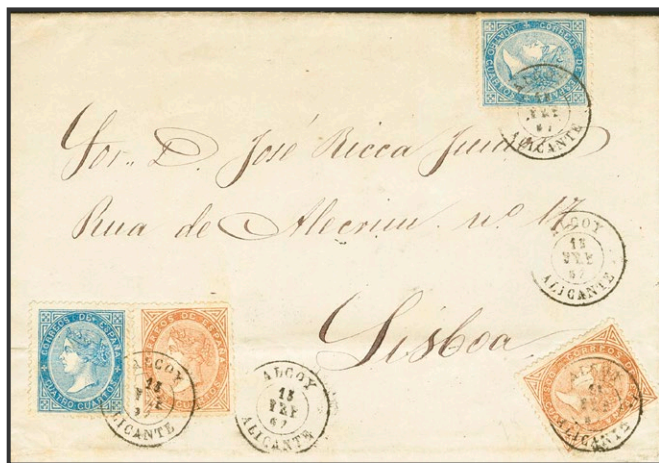 CORREOS DE ESPAÑA
CUATRO CUARTOS
ALCOY
13
FEB
67
ALICANTE
Sor. D. José Ricca Junior
Rua de Alecrim nº 17
ALCOY
13
FEB
67
ALICANTE
Lisboa
CORREOS DE ESPAÑA
CUATRO CUARTOS
CORREOS DE ESPAÑA
ALCOY
13
FEB
67
ALICANTE
ALCOY
13
FEB
67
ALICANTE
CORREOS DE
ALCOY
13
ALICANTE